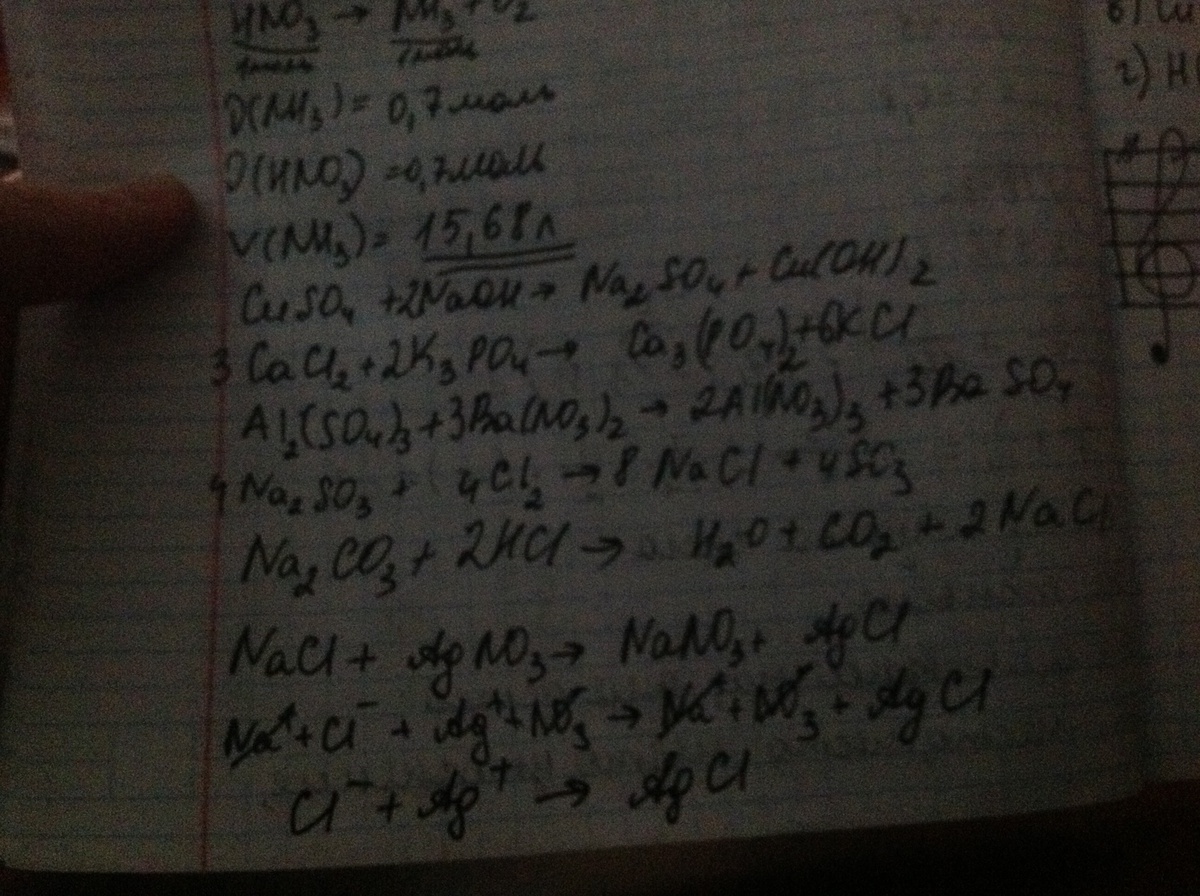 HNO₃ → NH₃ + O₂
1моль 1моль
ν(NH₃) = 0,7 моль
ν(HNO₃) = 0,7 моль
V(NH₃) = 15,68 л
CuSO₄ + 2NaOH → Na₂SO₄ + Cu(OH)₂
3 CaCl₂ + 2K₃PO₄ → Ca₃(PO₄)₂ + 6KCl
Al₂(SO₄)₃ + 3Ba(NO₃)₂ → 2Al(NO₃)₃ + 3BaSO₄
4 Na₂SO₃ + 4Cl₂ → 8 NaCl + 4SO₃
Na₂CO₃ + 2HCl → H₂O + CO₂ + 2NaCl
NaCl + AgNO₃ → NaNO₃ + AgCl
Na⁺ + Cl⁻ + Ag⁺ + NO₃⁻ → Na⁺ + NO₃⁻ + AgCl
Cl⁻ + Ag⁺ → AgCl
в)
г) H